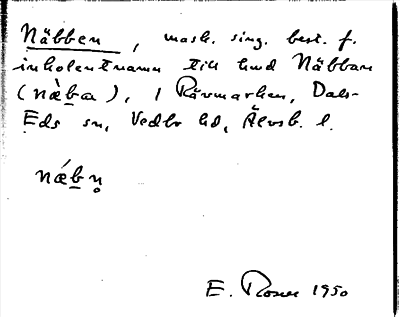 Näbben, mask. sing. best. f.
inholentnamn till hmd Näbban
(næ̀ba), i Rävmarken, Dals-
Eds sn, Vedbo hd, Älvsb. l.
nǽbn̥
E. Rosen 1950